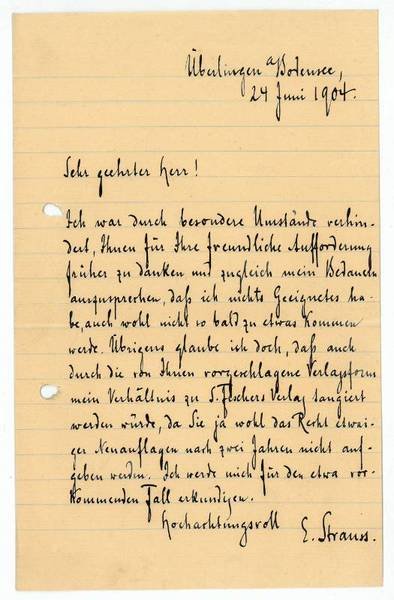 Überlingen a Bodensee,
24 Juni 1904.
Sehr geehrter Herr!
Ich war durch besondere Umstände verhin-
dert, Ihnen für Ihre freundliche Aufforderung
früher zu danken und zugleich mein Bedauern
auszusprechen, daß ich nichts Geeignetes ha-
be, auch wohl nicht so bald zu etwas kommen
werde. Übrigens glaube ich doch, daß auch
durch die von Ihnen vorgeschlagene Verlagsform
mein Verhältnis zu S. Fischers Verlag tangiert
werden würde, da Sie ja wohl das Recht etwai-
ger Neuauflagen nach zwei Jahren nicht auf-
geben werden. Ich werde mich für den etwa vor-
kommenden Fall erkundigen.
Hochachtungsvoll
E. Strauss.